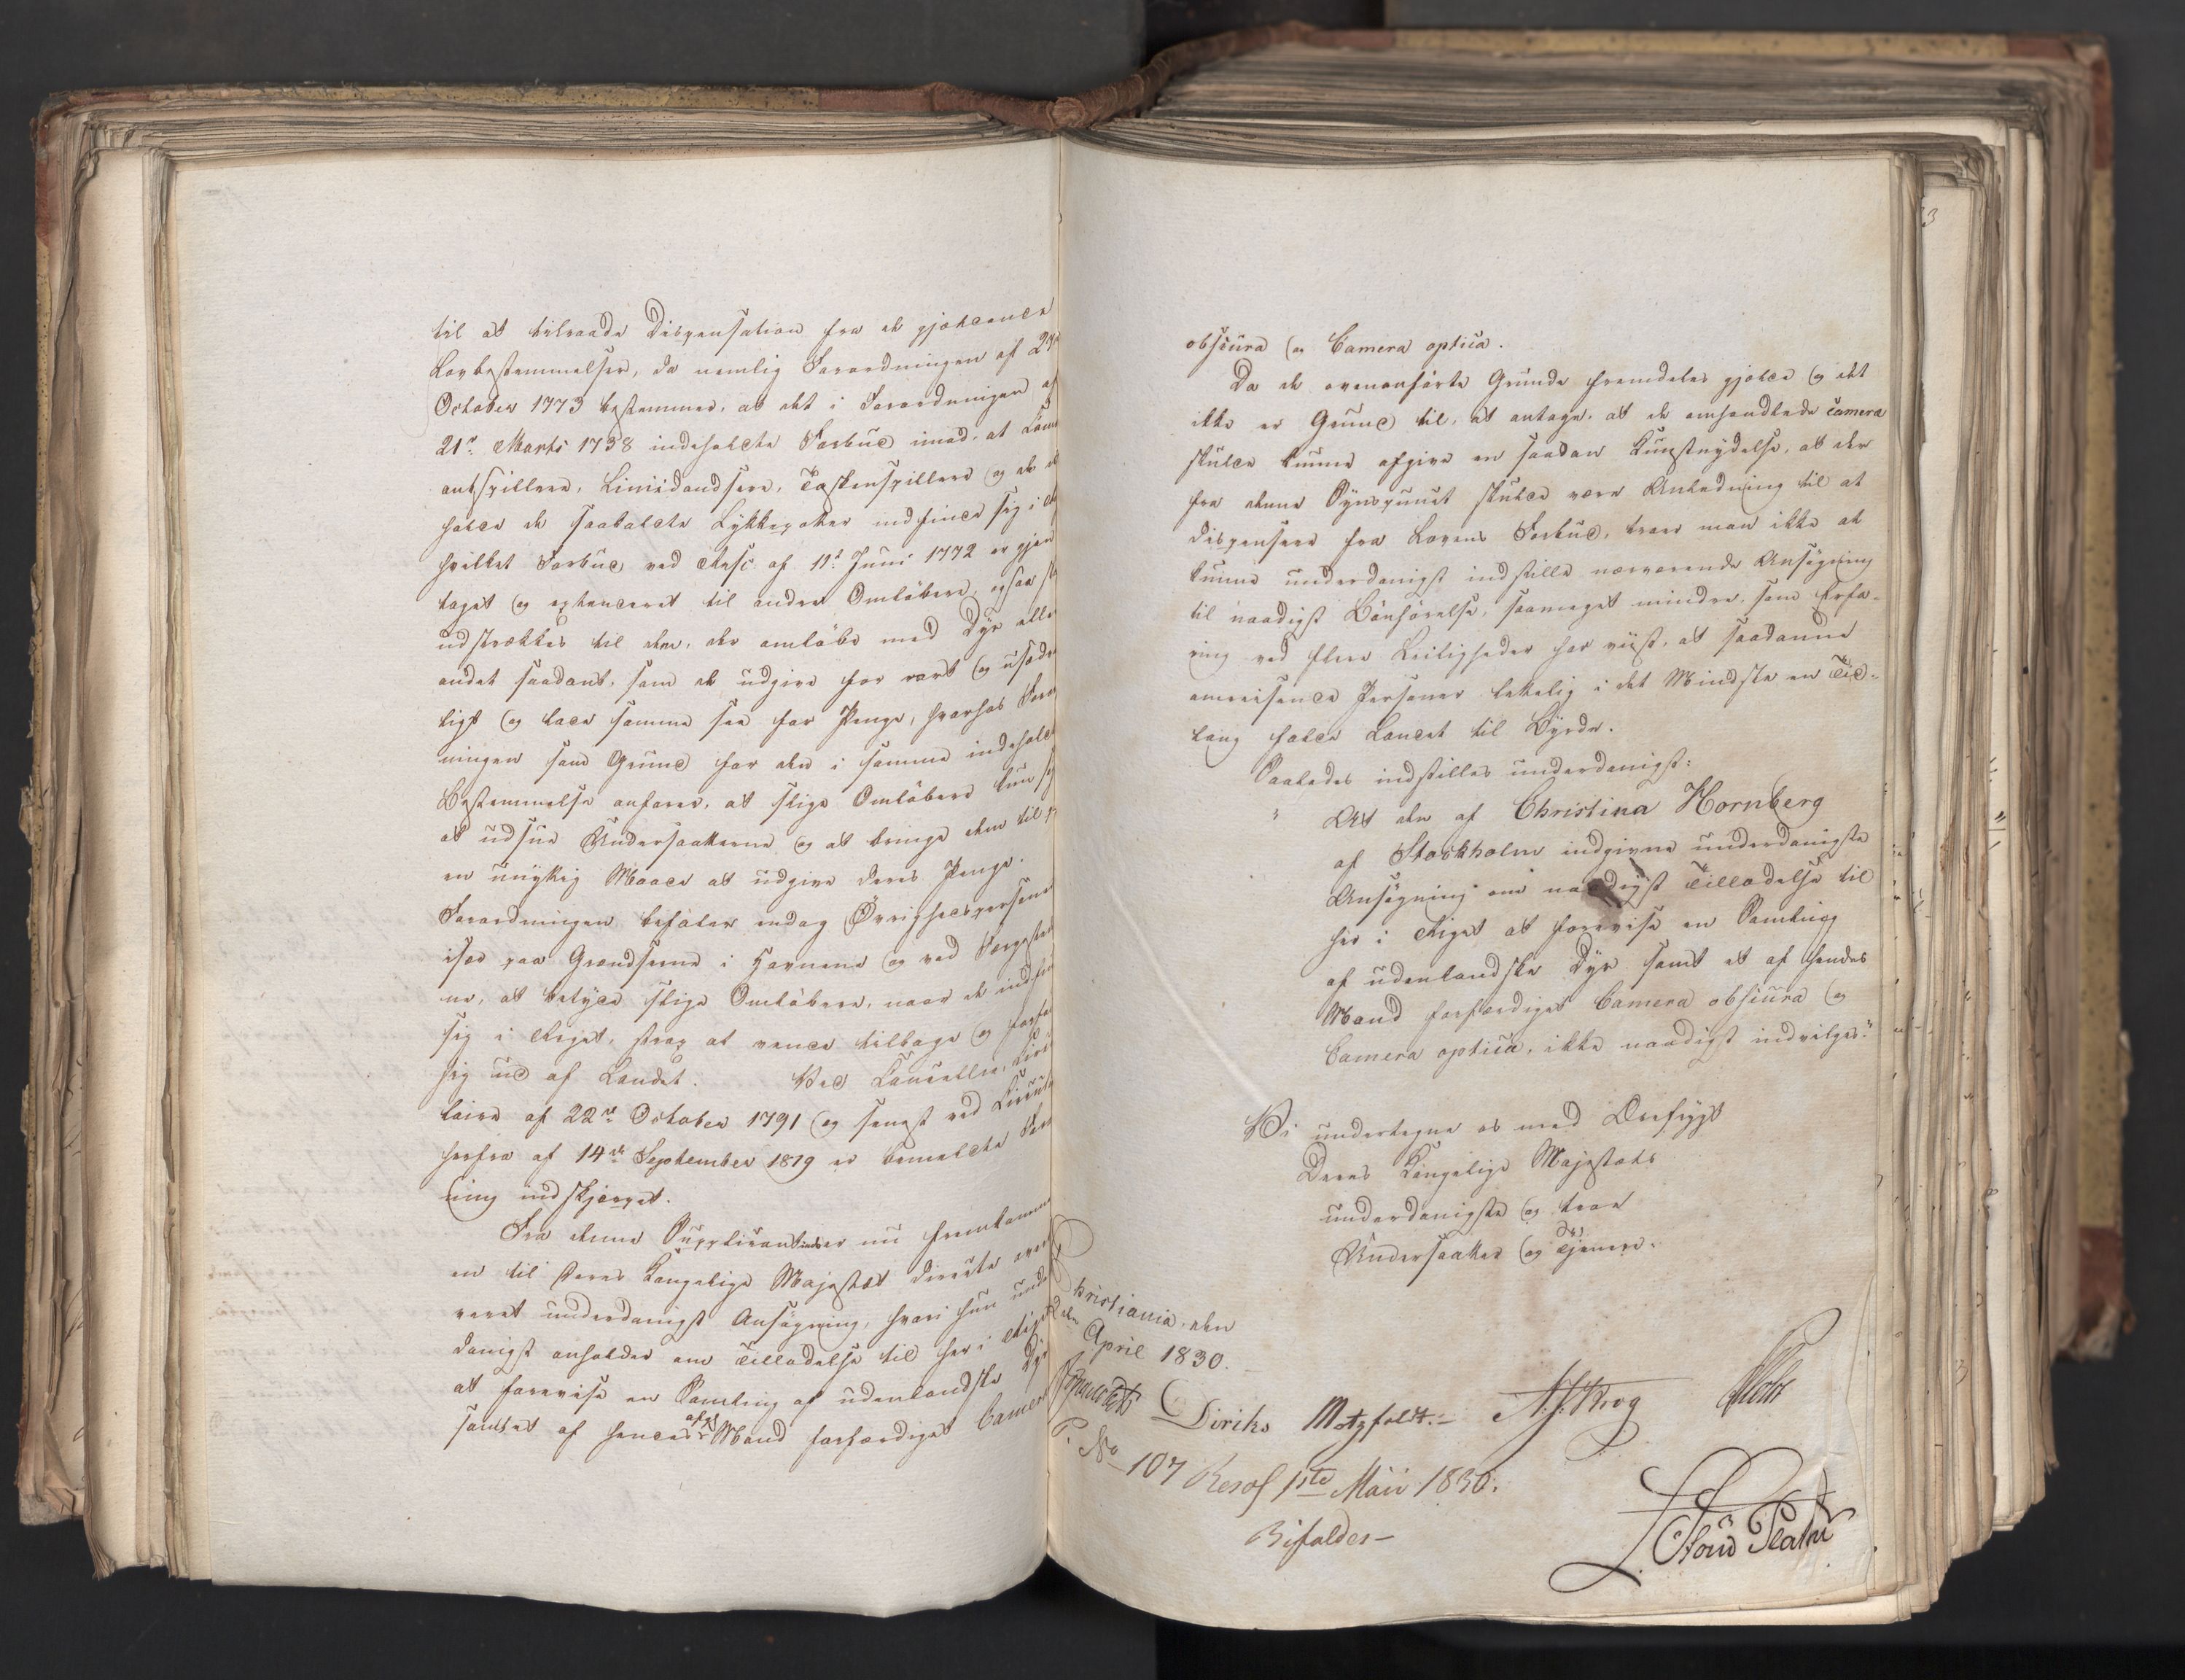 til at tilraade Dispensation fra de gjældende
Lovbestemmelser, da nemlig Forordningen af 27de
October 1773 bestemmer, at det i Forordningen af
21de Marts 1738 indeholdte Forbud imod, at Com
ædiantspillere, Liniedandsere, Taskenspillere og de der
holde de saakaldte Lykkepotter indfinde sig i
hvilket Forbud ved Resc. af 11te Juni 1772 er gjen
taget og extenderet til andre Omløbere, ogsaa
udstrækkes til dem, der omløbe med Dyr eller
andet saadant, som de udgive for rart og usædvan
ligt og lade samme see for Penge, hvorhos Forord
ningen som Grund for den i samme indeholdte
Bestemmelse anfører, at slige Omløbere kun
at udsue Undersaatterne og at bringe dem til
en unyttig Maade at udgive deres Penge.
Forordningen befaler endog Øvrighedspersoner
især paa Grændserne i Havnene og ved Færgestæder
ne, at betyde slige Omløbere, naar de indfinde
sig i Riget, strax at vende tilbage og forføie
sig ud af Landet. Ved Cancellie, Circu
laire af 22de October 1791 og senest ved Circulaire
herfra af 14de September 1819 er bemeldte Forord
ning indskjærpet.
Fra denne Supplicantinde er nu fremkommen
en til Deres Kongelige Majestæt directe
veret underdanigst Ansøgning, hvori hun under
danigst anholder om Tilladelse til her i Riget
at forevise en Samling af udenlandske Dyr
samt et af hendes afg. Mand forfærdiget Camera
obscura og Camera optica.
Da de ovenanførte Grunde fremdeles gjælde og det
ikke er Grund til, at antage, at de omhandlede Camera
skulde kunne afgive en saadan Kunstnydelse, at der
fra denne Synspunct skulde være Anledning til at
dispensere fra Lovens Forbud, troer man ikke at
kunne underdanigst indstille nærværende Ansøgning
til naadigst Bønhørelse, saameget mindre, som Erfa-
ring ved flere Leiligheder har viist, at saadanne
omreisende Personer lettelig i det Mindste en Tid-
lang falde Landet til Byrde.
Saaledes indstilles underdanigst:
" At den af Christina Hornberg
af Stockholm indgivne underdanigste
Ansøgning om naadigst Tilladelse til
her i Riget at forevise en Samling
af udenlandske Dyr samt et af hendes
Mand forfærdiget Camera obscura og
Camera optica, ikke naadigst indvilges."
Vi undertegne os med Ærefrygt
Deres Kongelige Majestæts
underdanigste og troe
Undersaatter og Tjenere.
Christiania, den
2den April 1830.
Diriks Motzfeldt.- N. J. Krog
P. No 107 Resol 1ste Maii 1830.
Bifaldes-